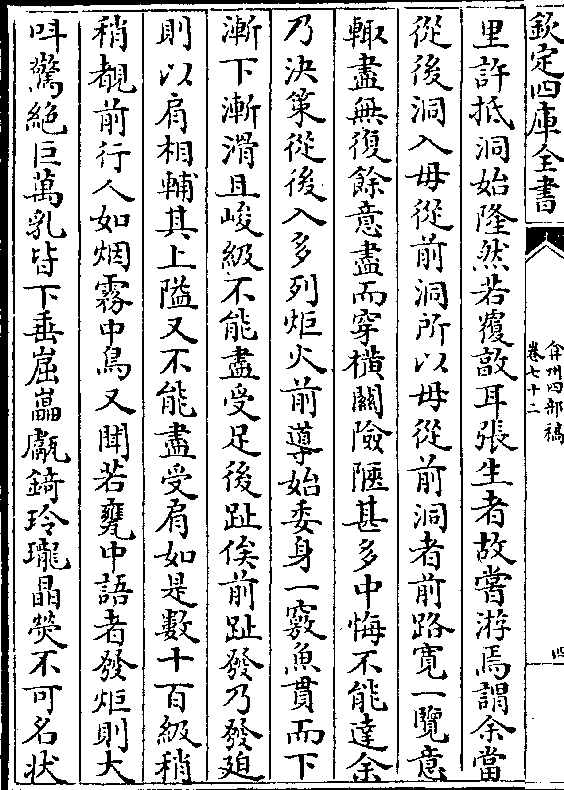 欽定四庫全書
弇州四部稿
卷七十二
四
里許抵洞始隆然若覆敔耳張生者故嘗游焉謂余當
從後洞入毋從前洞所以毋從前洞者前路寛一覽意
輙盡無復餘意盡而穿横關險陿甚多中悔不能達余
乃決策從後入多列炬火前導始委身一竅魚貫而下
漸下漸滑且峻級不能盡受足後趾俟前趾發乃發廹
則以肩相輔其上隘又不能盡受肩如是數十百級稍
稍覩前行人如烟霧中鳥又聞若甕中語者發炬則大
呌驚絶巨萬乳皆下垂𡹬甗錡玲瓏晶熒不可名狀